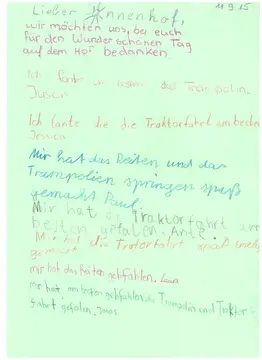 Lieber Sonnenhof,
11.9.15
wir möchten uns bei euch
für den Wunderschönen Tag
auf dem Hof bedanken.
Ich fante am besten das Trampolin.
Ich fante die die Traktorfahrt am besten
Mir hat das Reiten und das
Trampolien springen spaß
gemacht Paul.
Mir hat die Traktorfahrt am
besten gefalen. Antė.
Mir hat die Trator fahrt spaß
gemacht
mir hat das Reiten gefahlen.
mir hat am besten gefahlen die Trampolin und Traktor
fahrt gefalen. Jonas